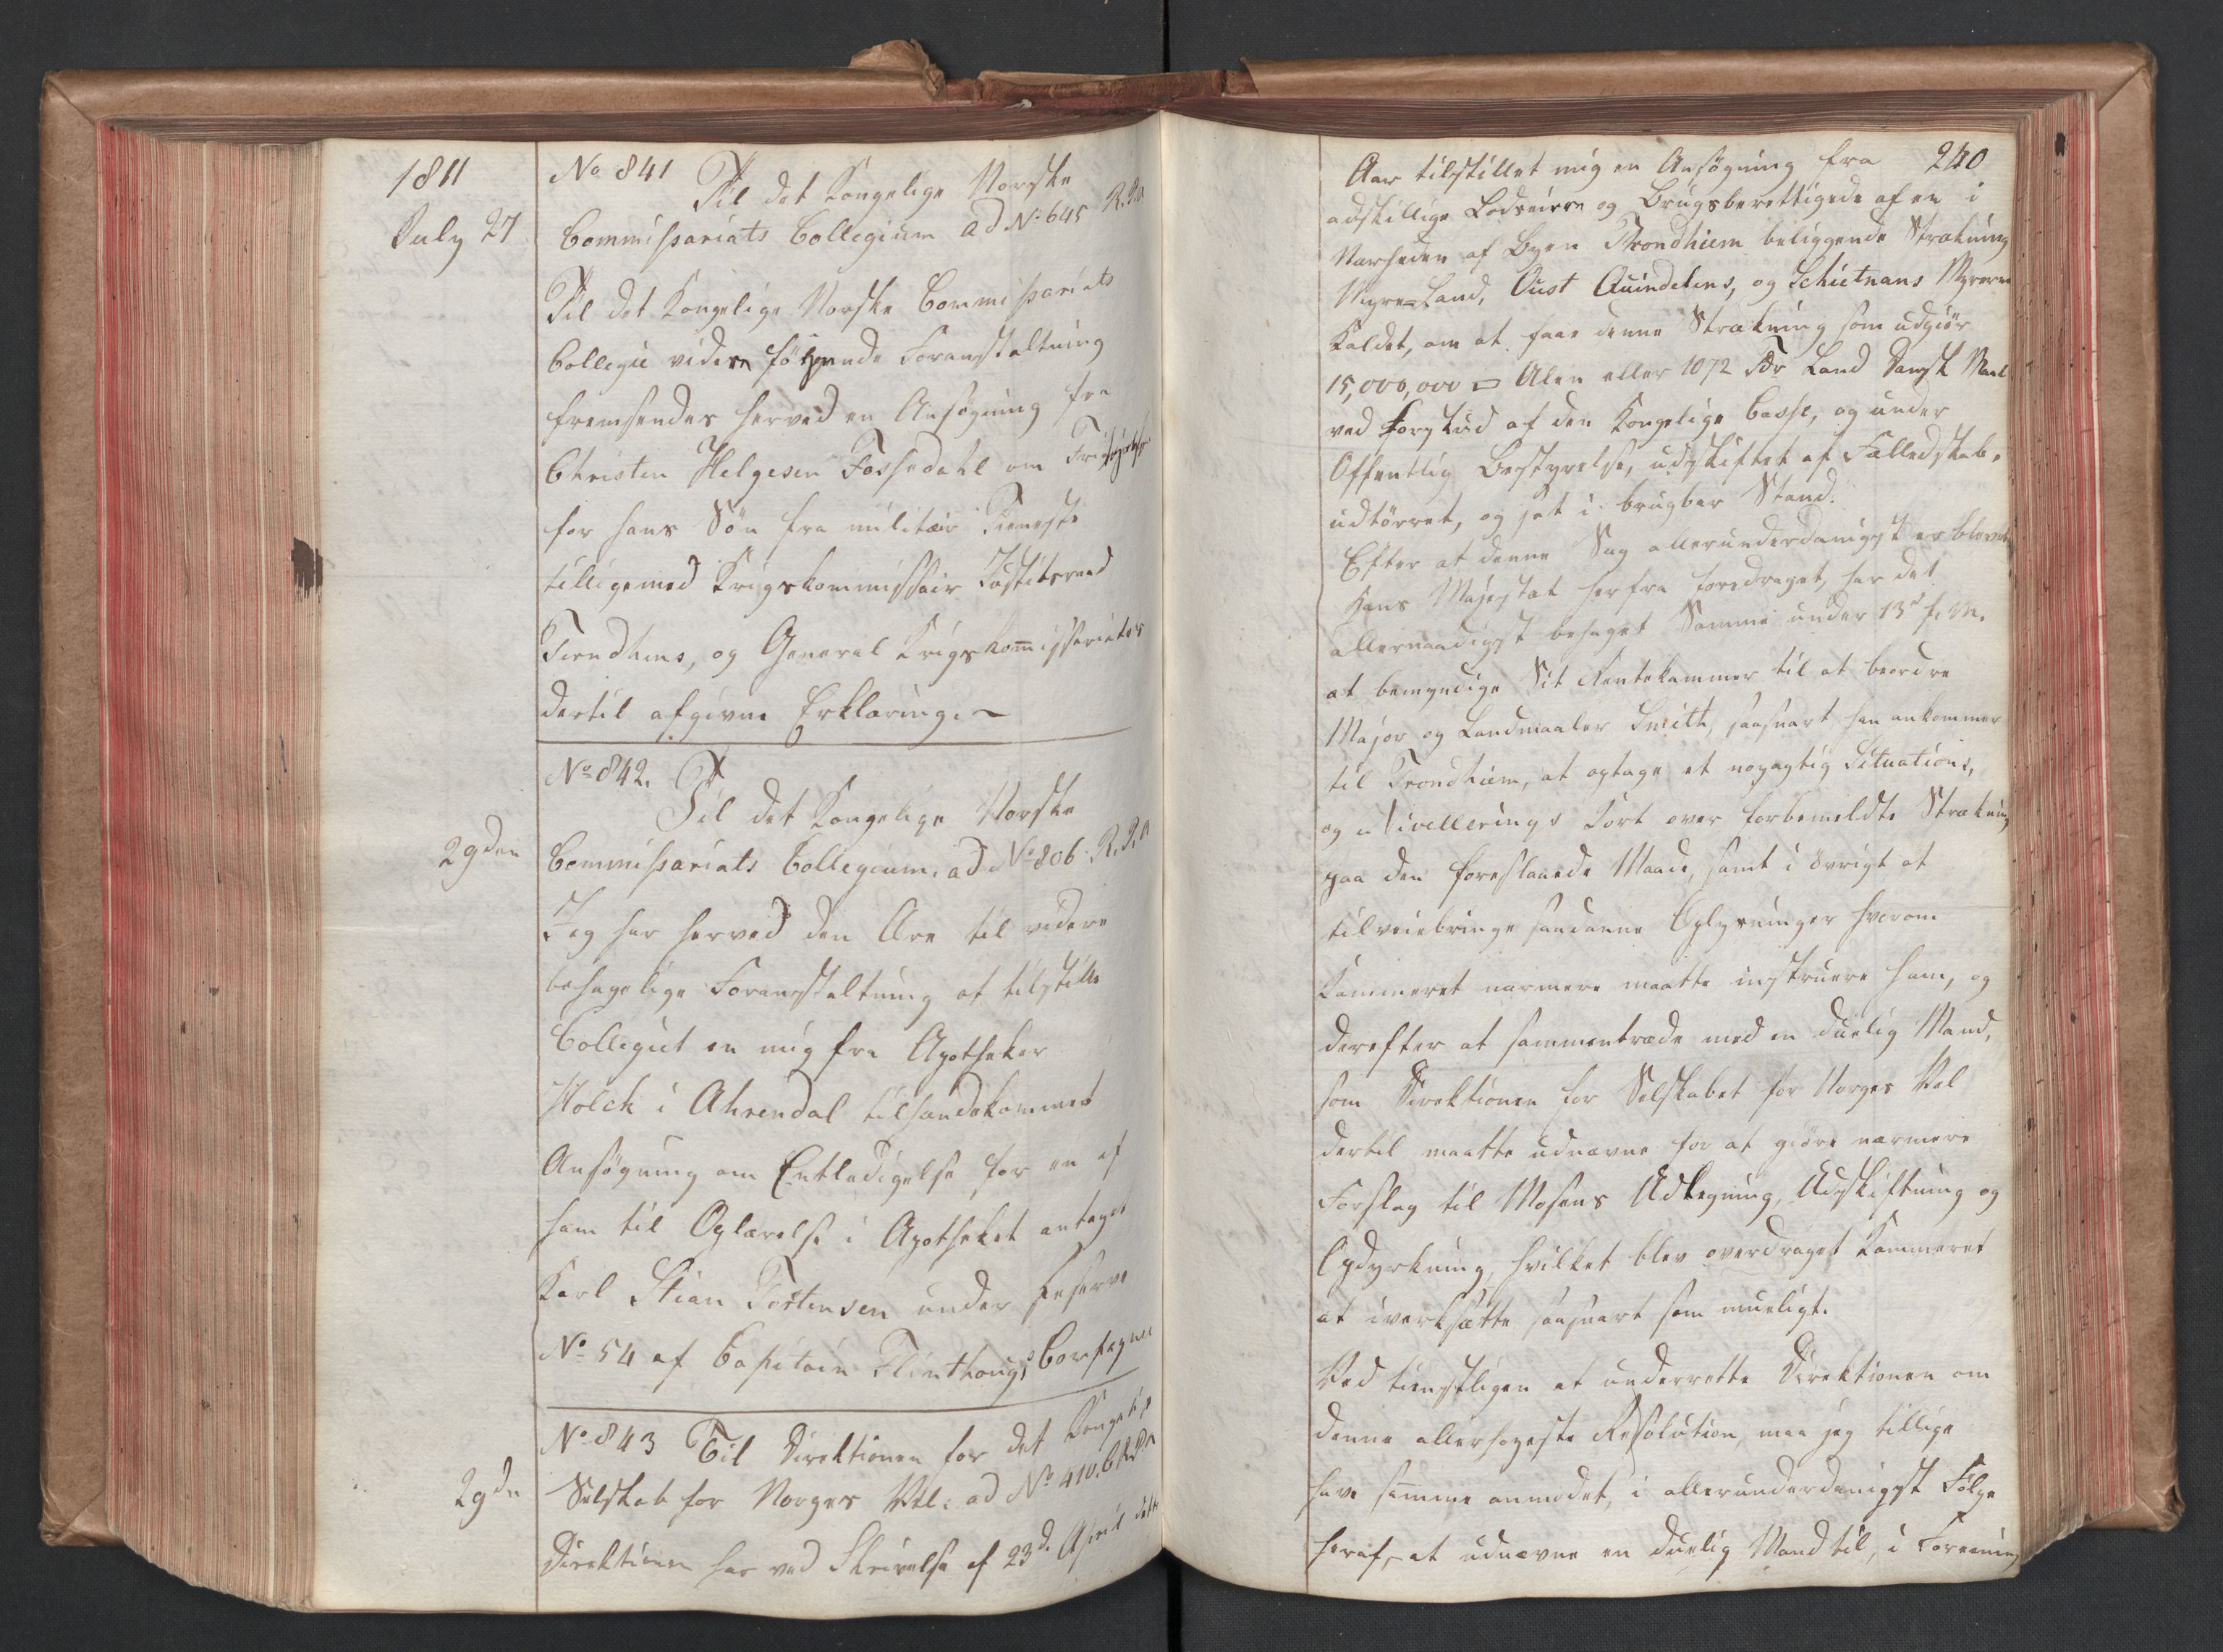 1811
July 27
No 841
Til det Kongelige Norske
Commissariats Collegium ad No 645 R. P. A
Til det Kongelige Norske Commissariats
Collegii videre følgende Foranstaltning
fremsendes herved en Ansøgning fra
Christen Helgesen Fossedahl om
for hans Søn fra militær Tieneste
tilligemed Krigskommissair Justitsraad
og General Krigskommissariatets
dertil afgivne Erklæring.
No 842.
Til det Kongelige Norske
29den
Commissariats Collegium. ad No 806 R. P. A
Jeg har herved den Ære til videre
behagelige Foranstaltning at tilstille
Collegiet en mig fra Apotheker
Holck i Ahrendal tilhændekommet
Ansøgning om Entledigelse for en af
ham til Oplærelse i Apotheket antagen
Karl Stian Tostensen under Reserve
No 54 af Capitain Flinthougs Compagnie
No 843 Til Direktionen for det Kongelige
29de
Selskab for Norges Vel. ad No 410. C. R. P. A
Direktionen har ved Skrivelse af 23d. April dette
240
Aar tilstillet mig en Ansøgning fra
adskillige Lodseiere og Brugsberettigede af en i
Nærheden af Byen Trondhiem beliggende Strækning
Myre-Land, Oust Quindelens, og Schietnans Myrene
kaldet, om at faae denne Strækning som udgiør
15,000,000 □ Alen eller 1072 Tdr Land Dansk Maal
ved Forskud af den Kongelige Casse, og under
Offentlig Bestyrelse, udskiftet af Fælledskab,
udtørret, og sat i brugbar Stand.
Efter at denne Sag allerunderdanigst er bleven
Hans Majestæt herfra foredraget, har det
allernaadigst behaget Samme under 13d f. M.
at bemyndige Sit Rentekammer til at beordre
Major og Landmaaler Smith, saasnart han ankommer
til Trondhiem, at optage et nøyagtig Situations,
og Nivellerings Kort over forbemeldte Strækning
paa den foreslaaede Maade, samt i øvrigt at
tilveiebringe saadanne Oplysninger hvorom
Kammeret nærmere maatte instruere ham, og
derefter at sammentræde med en duelig Mand,
som Direktionen for Selskabet for Norges Vel
dertil maatte udnævne for at giøre nærmere
Forslag til Mosens Udtegning, Udskiftning og
Opdyrkning, hvilket blev overdraget Kammeret
at iverksætte saasnart som mueligt.
Ved tienstligen at underrette Direktionen om
denne allerhøyeste Resolution, maa jeg tillige
have samme anmodet, i allerunderdanigst Følge
heraf, at udnævne en duelig Mand til, i Forening